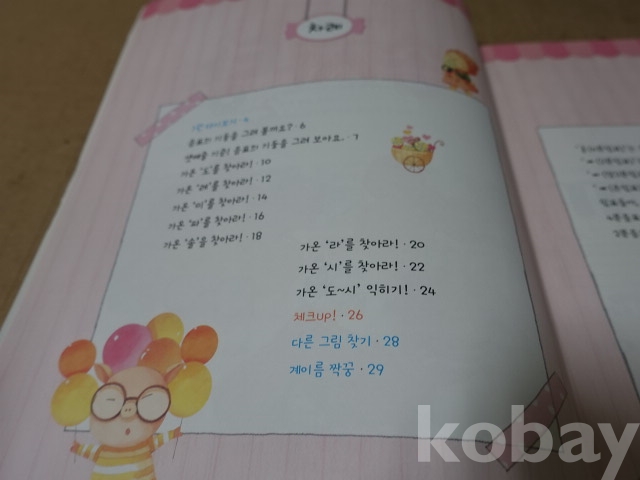 차례
음표의 기둥을 그려 볼까요? · 6
셋째줄 기준! 음표의 기둥을 그려 보아요. · 7
가온 '도'를 찾아라! · 10
가온 '레'를 찾아라! · 12
가온 '미'를 찾아라! · 14
가온 '파'를 찾아라! · 16
가온 '솔'을 찾아라! · 18
가온 '라'를 찾아라! · 20
가온 '시'를 찾아라! · 22
가온 '도~시' 익히기! · 24
체크up! · 26
다른 그림 찾기 · 28
계이름 짝꿍 · 29
kobay